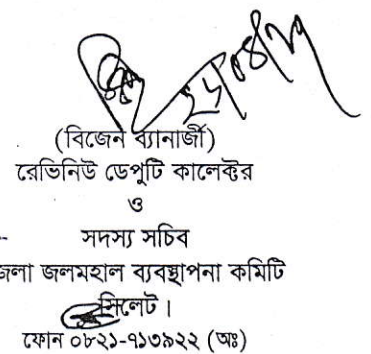 (বিজেন ব্যানার্জী)
রেভিনিউ ডেপুটি কালেক্টর
ও
সদস্য সচিব
জেলা জলমহাল ব্যবস্থাপনা কমিটি
সিলেট ।
ফোন ০৮২১-৭১৩৯২২ (অঃ)